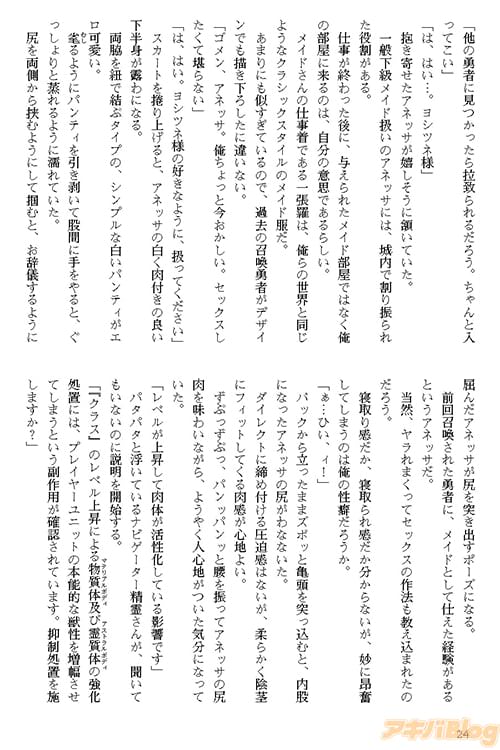 「他の勇者に見つかったら拉致られるだろう。ちゃんと入
ってこい」
「は、はい…。ヨシツネ様」
抱き寄せたアネッサが嬉しそうに頷いていた。
一般下級メイド扱いのアネッサには、城内で割り振られ
た役割がある。
仕事が終わった後に、与えられたメイド部屋ではなく俺
の部屋に来るのは、自分の意思であるらしい。
メイドさんの仕事着である一張羅は、俺らの世界と同じ
ようなクラシックスタイルのメイド服だ。
あまりにも似すぎているので、過去の召喚勇者がデザイ
ンでも描き下ろしたに違いない。
「ゴメン、アネッサ。俺ちょっと今おかしい。セックスし
たくて堪らない」
「は、はい。ヨシツネ様の好きなように、扱ってください」
スカートを捲り上げると、アネッサの白く肉付きの良い
下半身が露わになる。
両脇を紐で結ぶタイプの、シンプルな白いパンティがエ
ロ可愛い。
毟るようにパンティを引き剥いで股間に手をやると、ぐ
っしょりと蒸れるように濡れていた。
尻を両側から挟むようにして掴むと、お辞儀するように
屈んだアネッサが尻を突き出すポーズになる。
前回召喚された勇者に、メイドとして仕えた経験がある
というアネッサだ。
当然、ヤラれまくってセックスの作法も教え込まれたの
だろう。
寝取り感だか、寝取られ感だか分からないが、妙に昂奮
してしまうのは俺の性癖だろうか。
「ぁ…ひい、ィ！」
バックから立ったままズボッと亀頭を突っ込むと、内股
になったアネッサの尻がわななく。
ダイレクトに締め付ける圧迫感はないが、柔らかく陰茎
にフィットしてくる肉感が心地よい。
ずぷっずぷっ、パンッパンッと腰を振ってアネッサの尻
肉を味わいながら、ようやく人心地がついた気分になって
いた。
「レベルが上昇して肉体が活性化している影響です」
パタパタと浮いているナビゲーター精霊さんが、聞いて
もいないのに説明を開始する。
「『クラス』のレベル上昇による物質体及び霊質体の強化
マテリアルボディ
アストラルボディ
処置には、プレイヤーユニットの本能的な獣性を増幅させ
てしまうという副作用が確認されています。抑制処置を施
しますか？」
24
アキバBlog